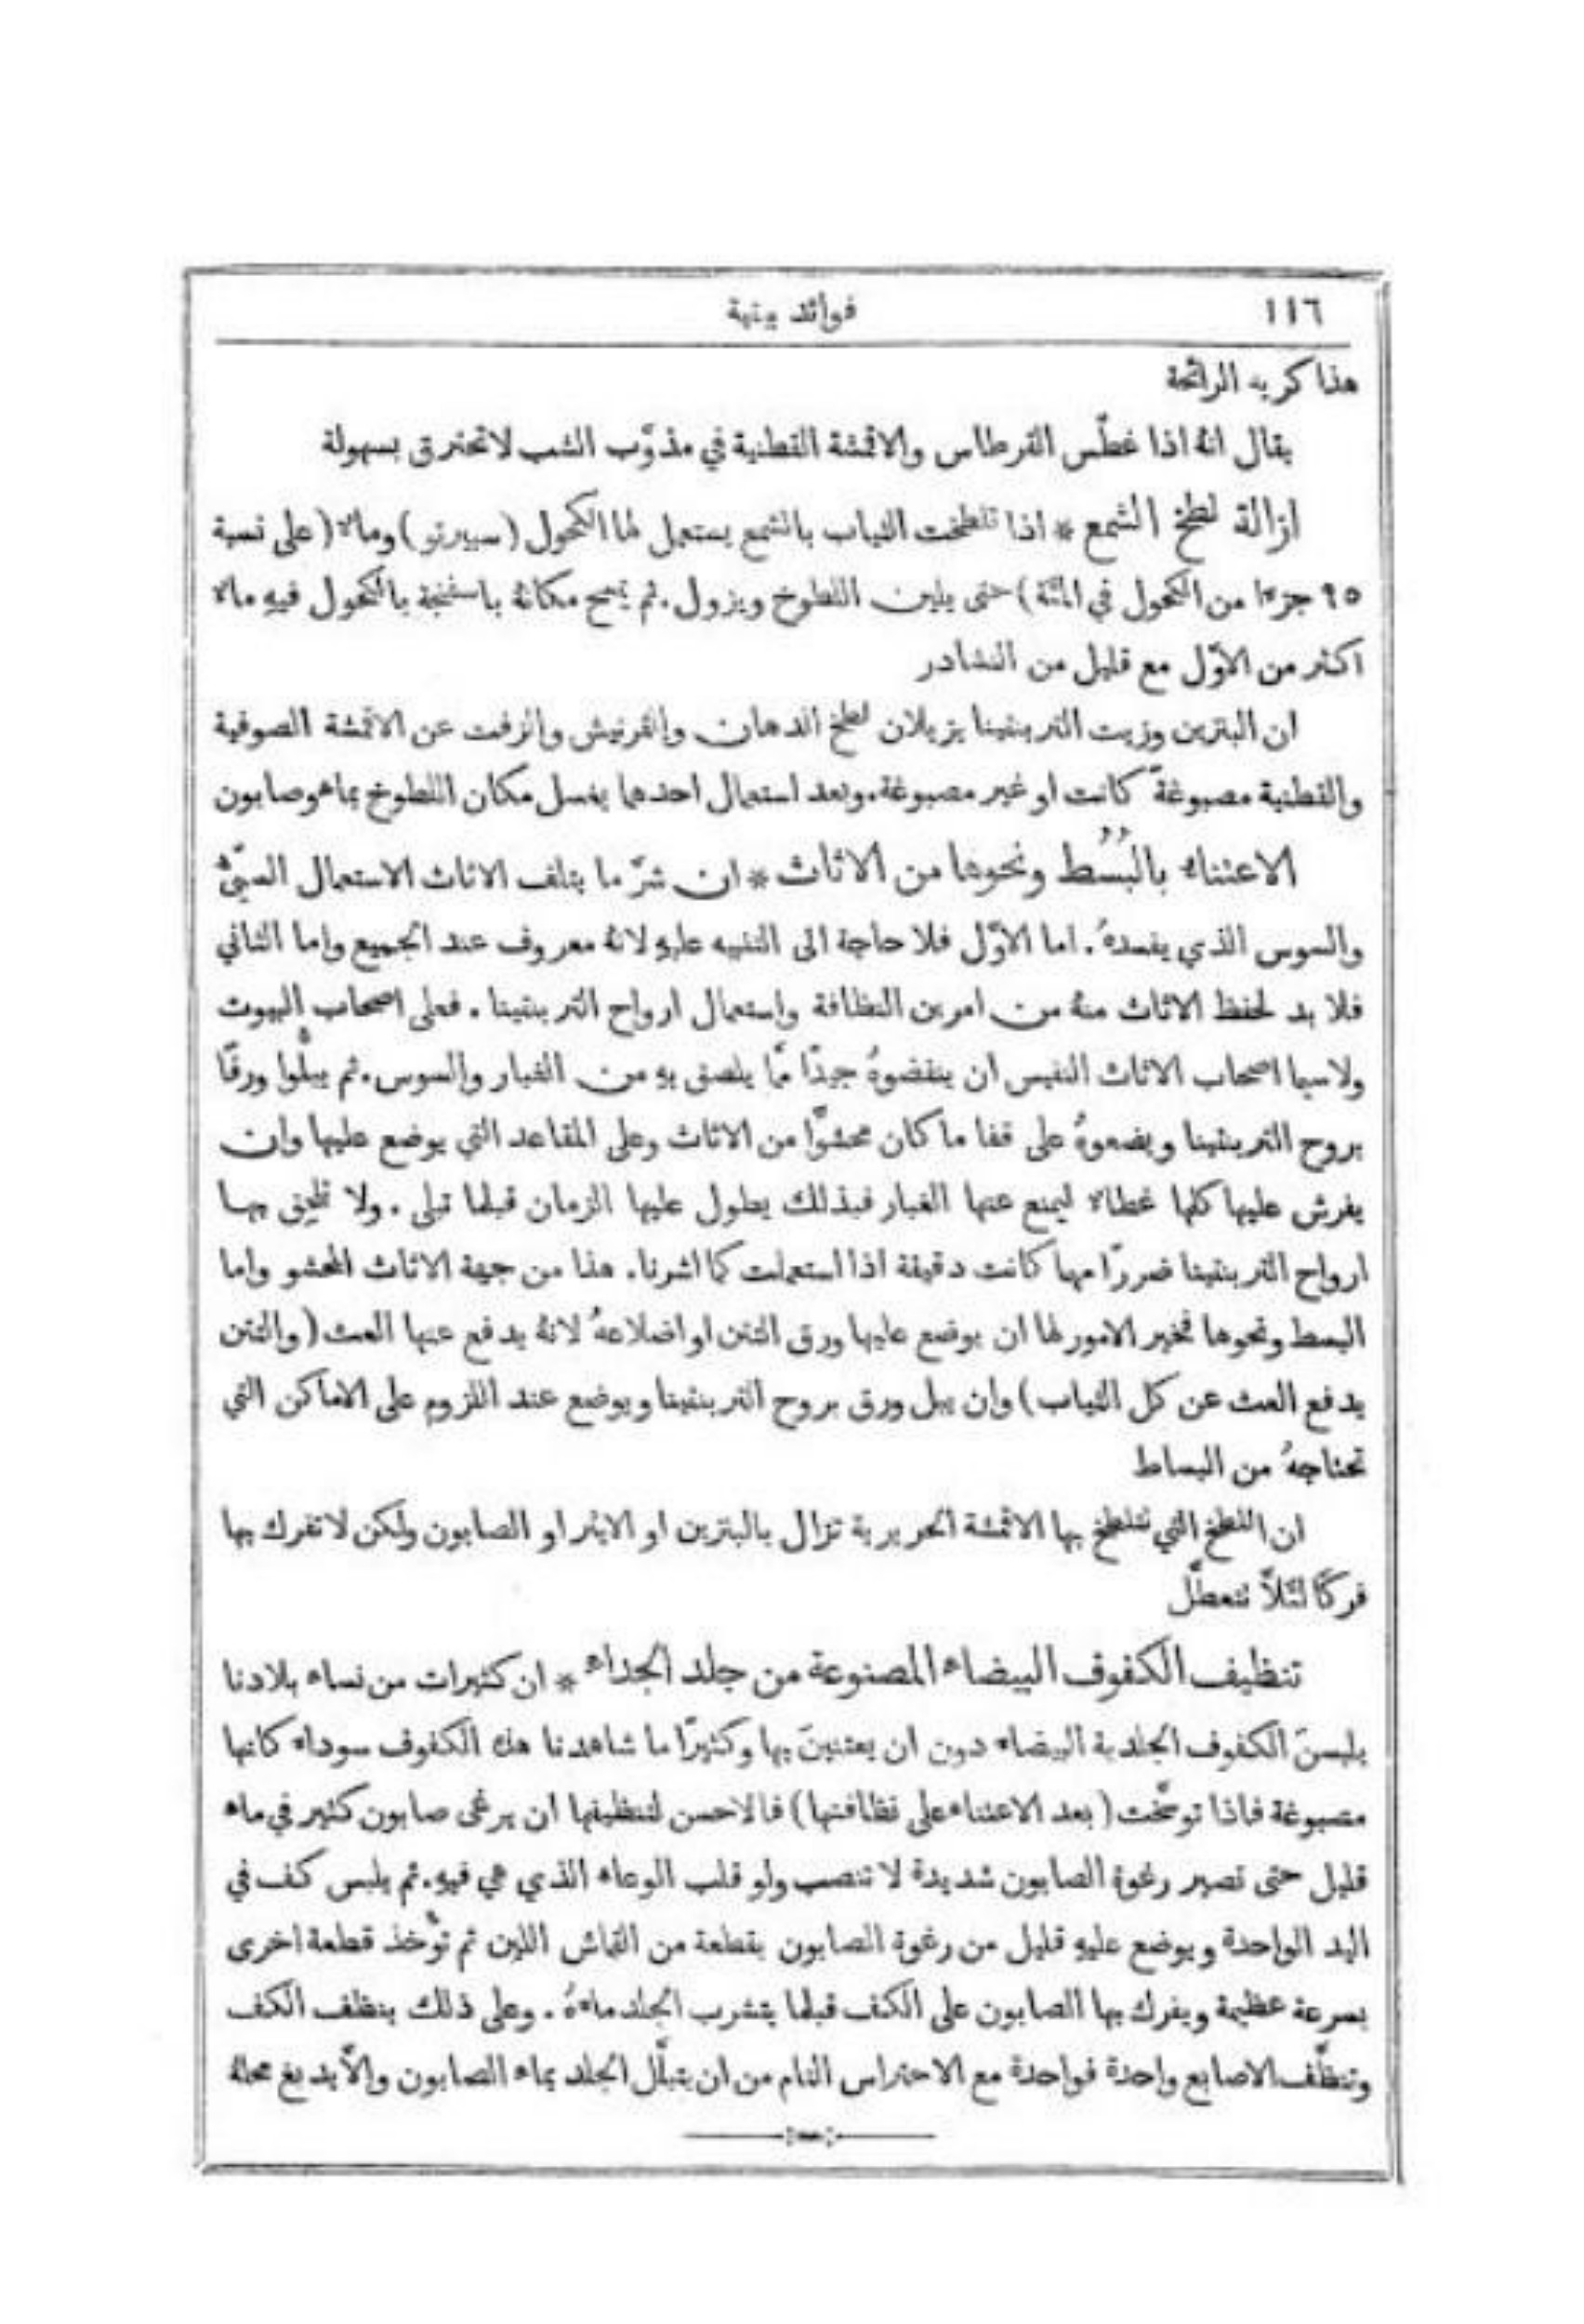 ١١٦ فوائد بيتية
هذا كريه الرائحة
يقال انهُ اذا غطّس القرطاس والاقمشة القطنية في مذوَّب الشب لا تحترق بسهولة
ازالة لطخ الشمع * اذا تلطخت الثياب بالشمع يستعمل لها الكحول (سبيرتو) وماء (على نسبة
٩٥ جزءا من الكحول في المئة) حتى يلين اللطوخ ويزول. ثم يمسح مكانهُ باسفنجة بالكحول فيهِ ماء
اكثر من الاوّل مع قليل من النشادر
ان البنزين وزيت التربنتينا يزيلان لطخ الدهان والفرنيش والزفت عن الاقمشة الصوفية
والقطنية مصبوغةً كانت او غير مصبوغة. وبعد استعمال احدهما يغسل مكان اللطوخ بماء وصابون
الاعتناء بالبُسُط ونحوها من الاثاث * ان شرّ ما يتلف الاثاث الاستعمال السيّئ
والسوس الذي يفسدهُ. اما الاوّل فلا حاجة الى التنبيه عليهِ لانهُ معروف عند الجميع واما الثاني
فلا بد لحفظ الاثاث منهُ من امرين النظافة واستعمال ارواح التربنتينا. فعلى اصحاب البيوت
ولاسيما اصحاب الاثاث النفيس ان ينفضوهُ جيدًا ممَّا يلصق بهِ من الغبار والسوس. ثم يبلُّوا ورقًا
بروح التربنتينا ويضعوهُ على قفا ما كان محشوًّا من الاثاث وعلى المقاعد التي يوضع عليها وان
يفرش عليها كلها غطاء ليمنع عنها الغبار فبذلك يطول عليها الزمان قبلما تبلى. ولا تلحق بها
ارواح التربنتينا ضررًا مهما كانت دقيقة اذا استعملت كما اشرنا. هذا من جهة الاثاث المحشو واما
البسط ونحوها فخير الامور لها ان يوضع عليها ورق التتن او اضلاعهُ لانهُ يدفع عنها العث (والتتن
يدفع العث عن كل الثياب) وان يبل ورق بروح التربنتينا ويوضع عند اللزوم على الاماكن التي
تحتاجهُ من البساط
ان اللطخ التي تتلطخ بها الاقمشة الحريرية تزال بالبنزين او الايثر او الصابون ولكن لا تفرك بها
فركًا لئلاَّ تتعطَّل
تنظيف الكفوف البيضاء المصنوعة من جلد الجداء * ان كثيرات من نساء بلادنا
يلبسنَ الكفوف الجلدية البيضاء دون ان يعتنينَ بها وكثيرًا ما شاهدنا هذه الكفوف سوداء كانها
مصبوغة فاذا توسَّخت (بعد الاعتناء على نظافتها) فالاحسن لتنظيفها ان يرغى صابون كثير في ماء
قليل حتى تصير رغوة الصابون شديدة لا تنصب ولو قلب الوعاء الذي هي فيهِ. ثم يلبس كف في
اليد الواحدة ويوضع عليهِ قليل من رغوة الصابون بقطعة من القماش اللين ثم تؤخذ قطعة اخرى
بسرعة عظيمة ويفرك بها الصابون على الكف قبلما يتشرب الجلد ماءهُ. وعلى ذلك ينظف الكف
وتنظَّف الاصابع واحدة فواحدة مع الاحتراس التام من ان يتبلَّل الجلد بماء الصابون والاَّ يدبغ محلهُ